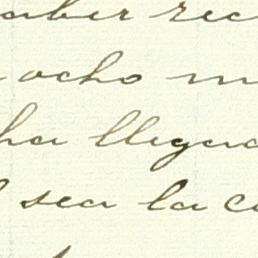 aber rec
ocho m
ha llega
sea la c